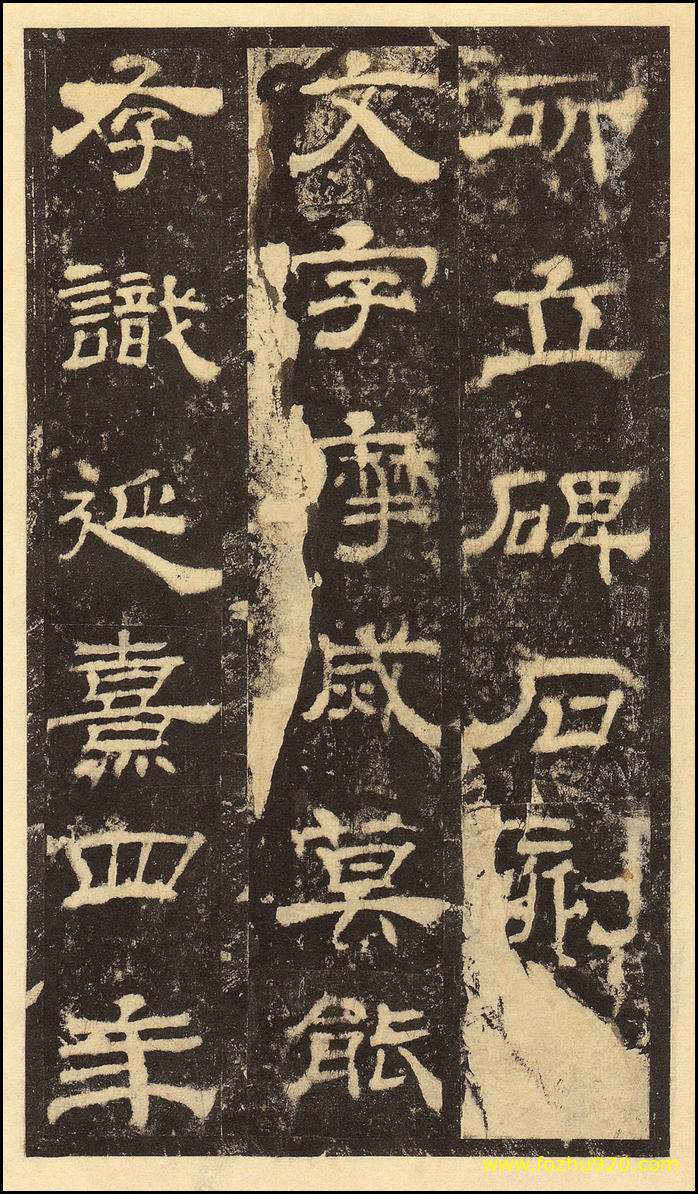 所立碑石刻
文字摩烕莫能
存識延熹四年
www.fozhu920.com